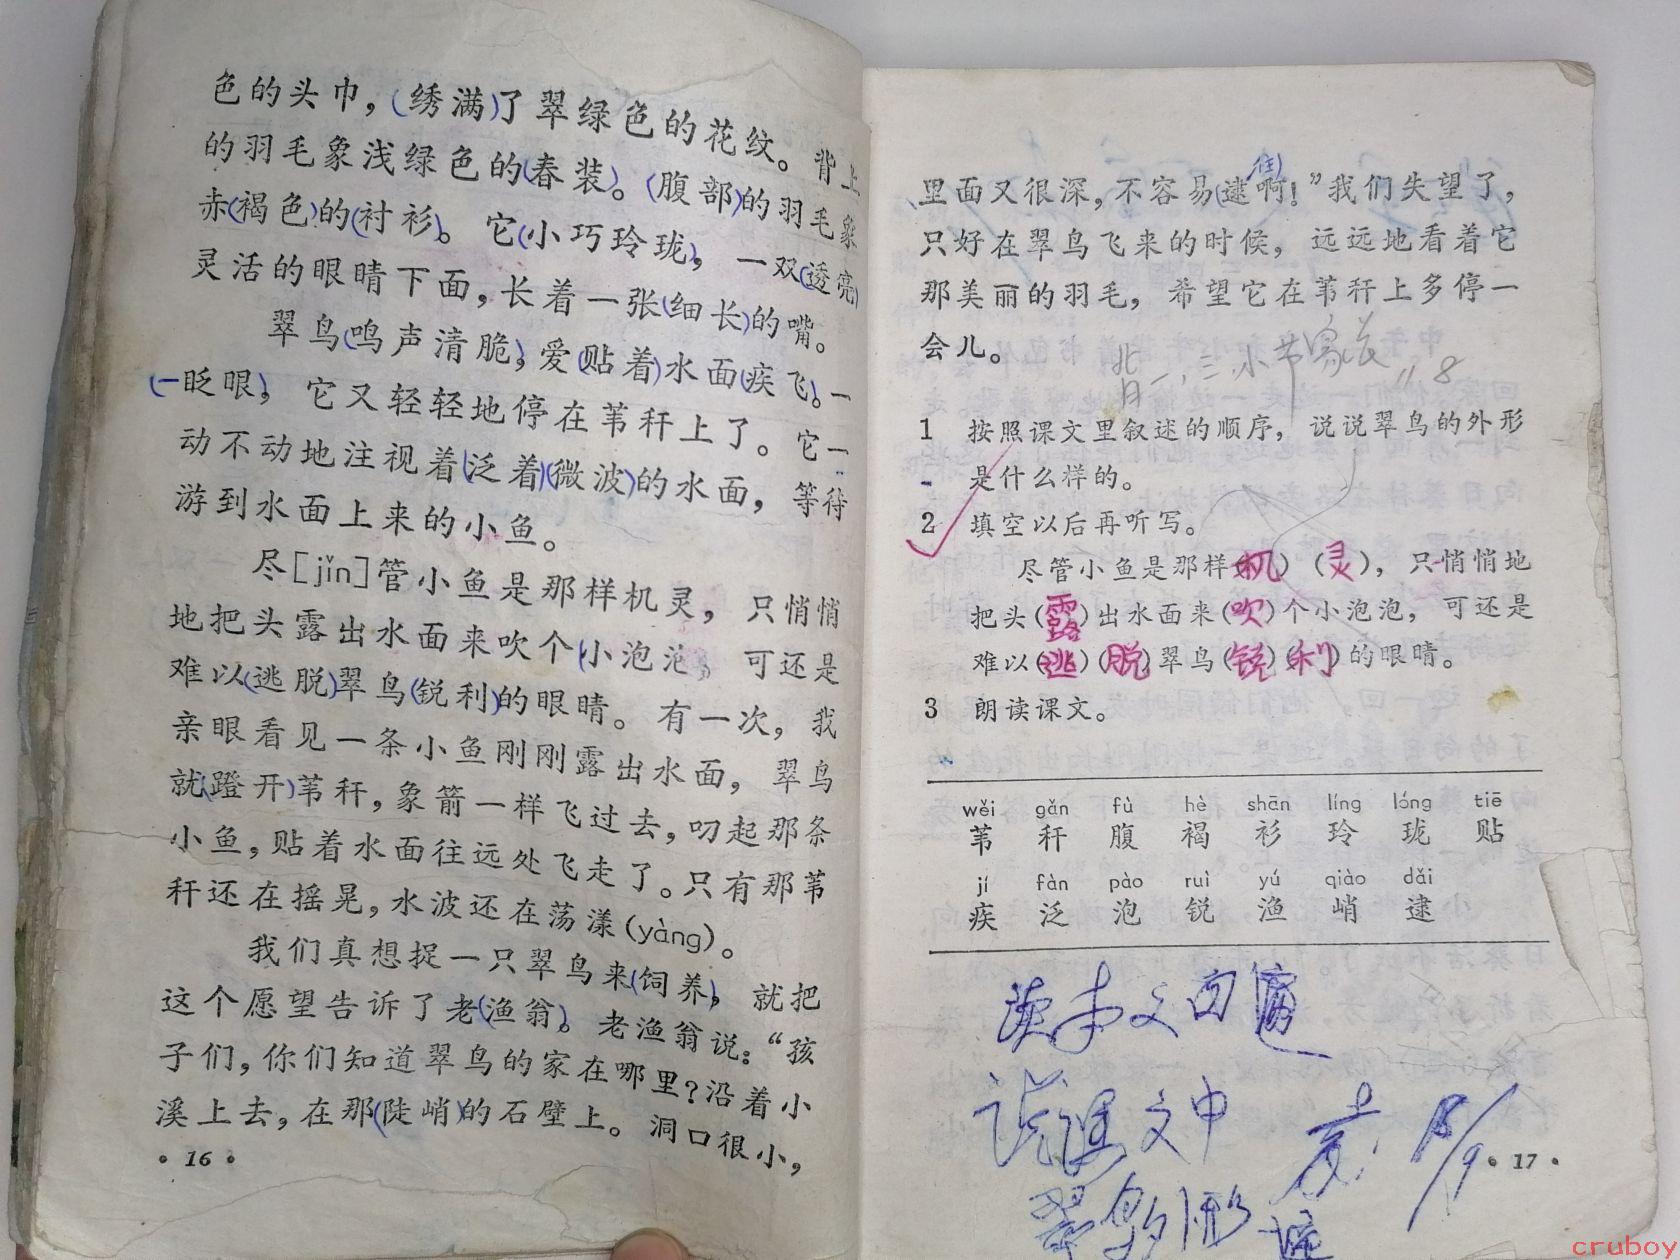 色的头巾，(绣满)了翠绿色的花纹。背上
的羽毛象浅绿色的(春装)。(腹部)的羽毛象
赤(褐色)的(衬衫)。它(小巧玲珑)，一双(透亮)
灵活的眼睛下面，长着一张(细长)的嘴。
翠鸟(鸣声清脆)，爱(贴着)水面(疾飞)。一
(一眨眼)，它又轻轻地停在苇秆上了。它一
动不动地注视着(泛着)(微波)的水面，等待
游到水面上来的小鱼。
尽[jǐn]管小鱼是那样机灵，只悄悄
地把头露出水面来吹个(小泡泡)，可还是
难以(逃脱)翠鸟(锐利)的眼睛。有一次，我
亲眼看见一条小鱼刚刚露出水面，翠鸟
就(蹬开)苇秆，象箭一样飞过去，叼起那条
小鱼，贴着水面往远处飞走了。只有那苇
秆还在摇晃，水波还在荡漾(yàng)。
我们真想捉一只翠鸟来(饲养)，就把
这个愿望告诉了老(渔翁)。老渔翁说：“孩
子们，你们知道翠鸟的家在哪里？沿着小
溪上去，在那(陡峭)的石壁上。洞口很小，
·16·
住
里面又很深，不容易(逮啊！”我们失望了，
只好在翠鸟飞来的时候，远远地看着它
那美丽的羽毛，希望它在苇秆上多停一
会儿。
1 按照课文里叙述的顺序，说说翠鸟的外形
是什么样的。
2 填空以后再听写。
尽管小鱼是那样(机)(灵)，只悄悄地
把头(露)出水面来(吹)个小泡泡，可还是
难以(逃)(脱)翠鸟(锐)(利)的眼睛。
3 朗读课文。
wěi gǎn fù hè shān líng lóng tiē
苇 秆 腹 褐 衫 玲 珑 贴
jí fàn pào ruì yú qiào dǎi
疾 泛 泡 锐 渔 峭 逮
读本文回
说课文中
翠鸟外形
8/9
·17·
cruboy